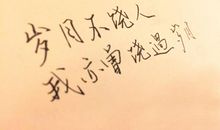 岁月不饶人
我亦曾饶过岁月